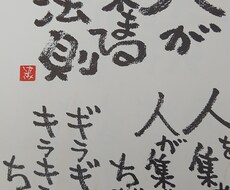 人が
集まる
法則
人を集
人が集
ち
ギラギ
キラキ
ち